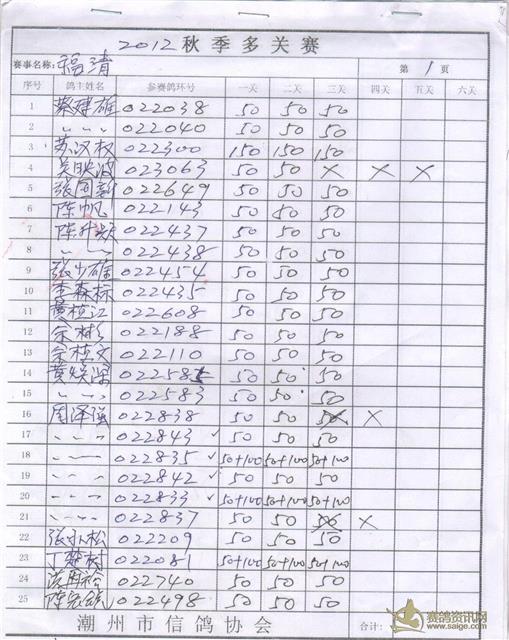 2012秋季多关赛
赛事名称: 福清 第 1 页
序号 鸽主姓名 参赛鸽环号 一关 二关 三关 四关 五关 六关
1 蔡建雄 022038 50 50 50
2 〃 〃 〃 022040 50 50 50
3 苏汉权 022300 150 150 150
4 吴映波 023063 50 50 × × ×
5 张国新 022649 50 50 50
6 陈帆 022143 50 50 50
7 陈升 022437 50 50 50
8 〃 〃 022438 50 50 50
9 张少雄 022454 50 50 50
10 李森标 022435 50 50 50
11 黄植江 022608 50 50 50
12 余彬 022188 50 50 50
13 余植文 022110 50 50 50
14 黄 022585 50 50 50
15 〃 〃 〃 022583 50 50 50
16 周泽强 022838 50 50 50 ×
17 〃 〃 〃 022843 ✓ 50 50 50
18 〃 〃 〃 022835 ✓ 50+100 50+100 50+100
19 〃 〃 〃 022842 ✓ 50 50 50
20 〃 〃 〃 022833 ✓ 50+100 50+100 50+100
21 〃 〃 〃 022837 50 50 50 ×
22 张 松 022209 50 50 50
23 丁楚树 022081 50+100 50+100 50+100
24 022740 50 50 50
25 陈 022498 50 50 50
潮州市信鸽协会 合计:
赛鸽资讯网
www.saige.com